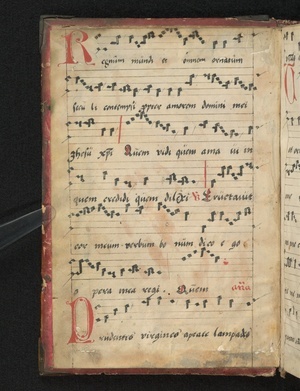 Regnum mundi et omnem ornatum
seculi contempsi propter amorem domini mei
jhesu xpi Quem vidi quem ama vi in
quem credidi quem dilexi V Eructavit
cor meum verbum bonum dico e go
o pera mea regi. Quem aña
Prudentes virgines aptate lampades